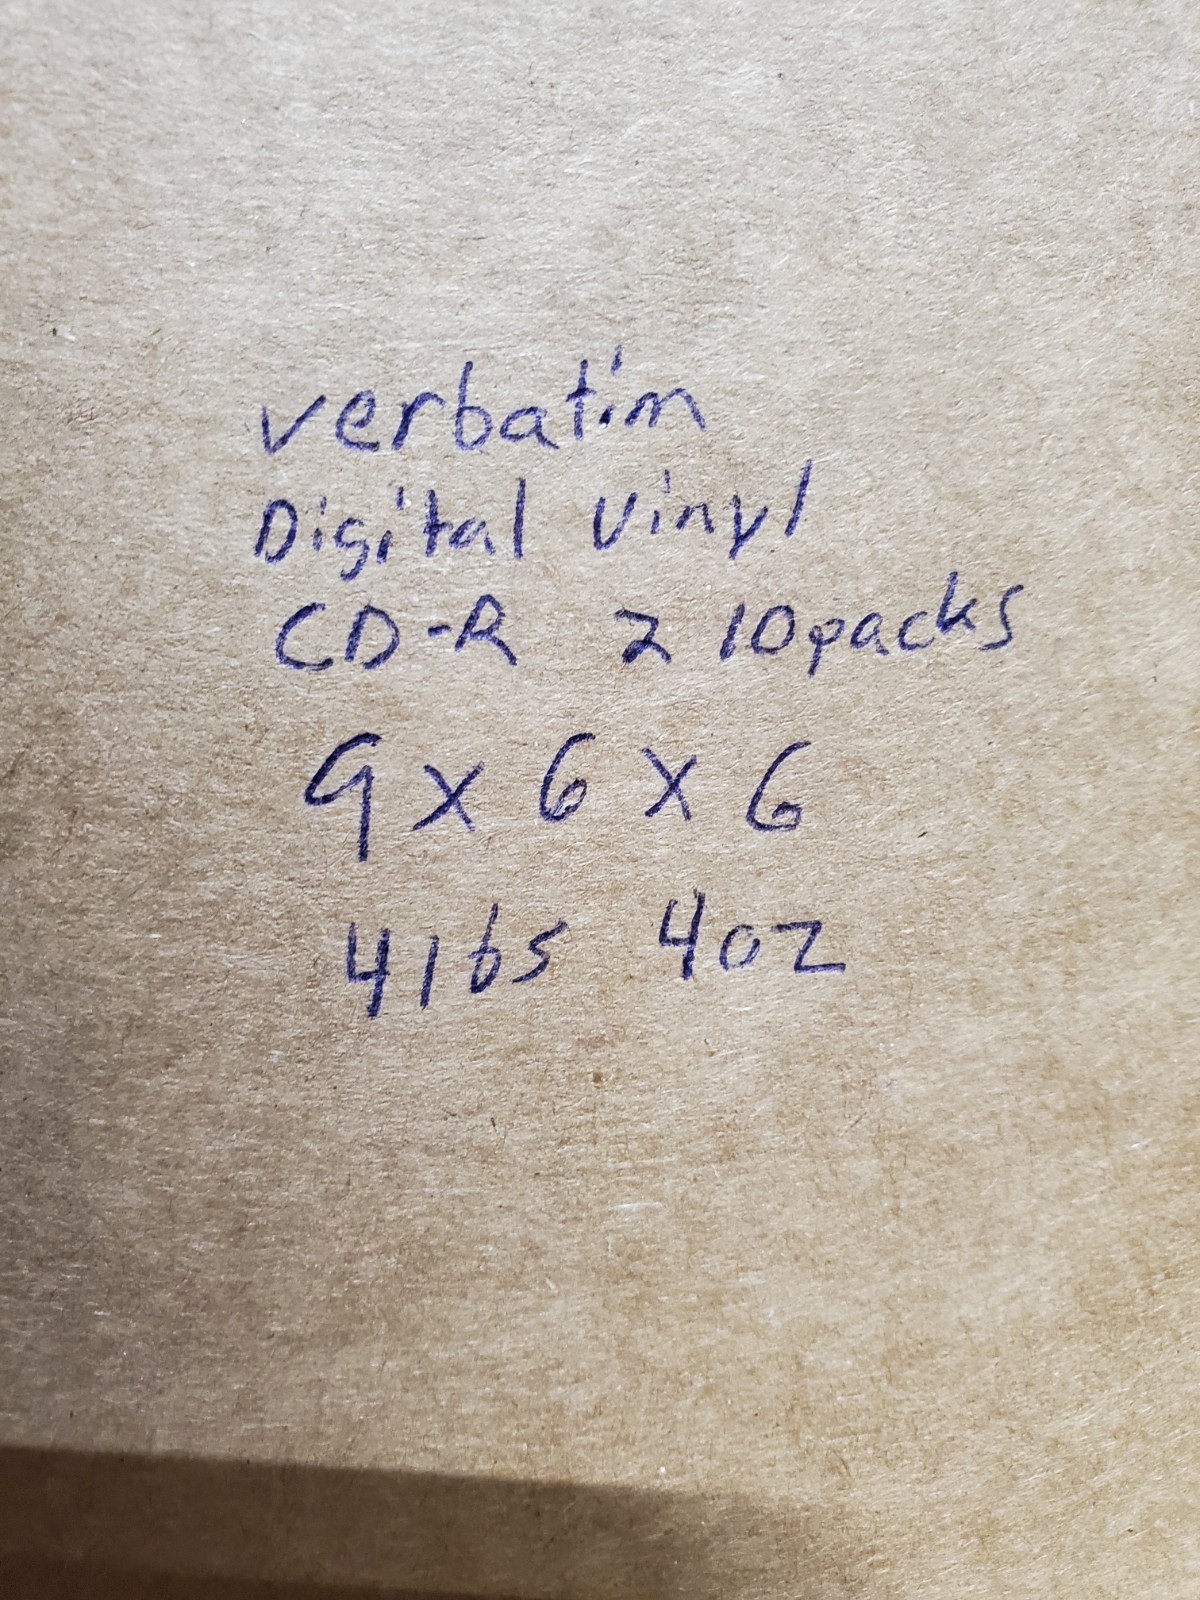 verbatim
Digital Vinyl
CD-R 2 10packs
9 x 6 x 6
4lbs 4oz